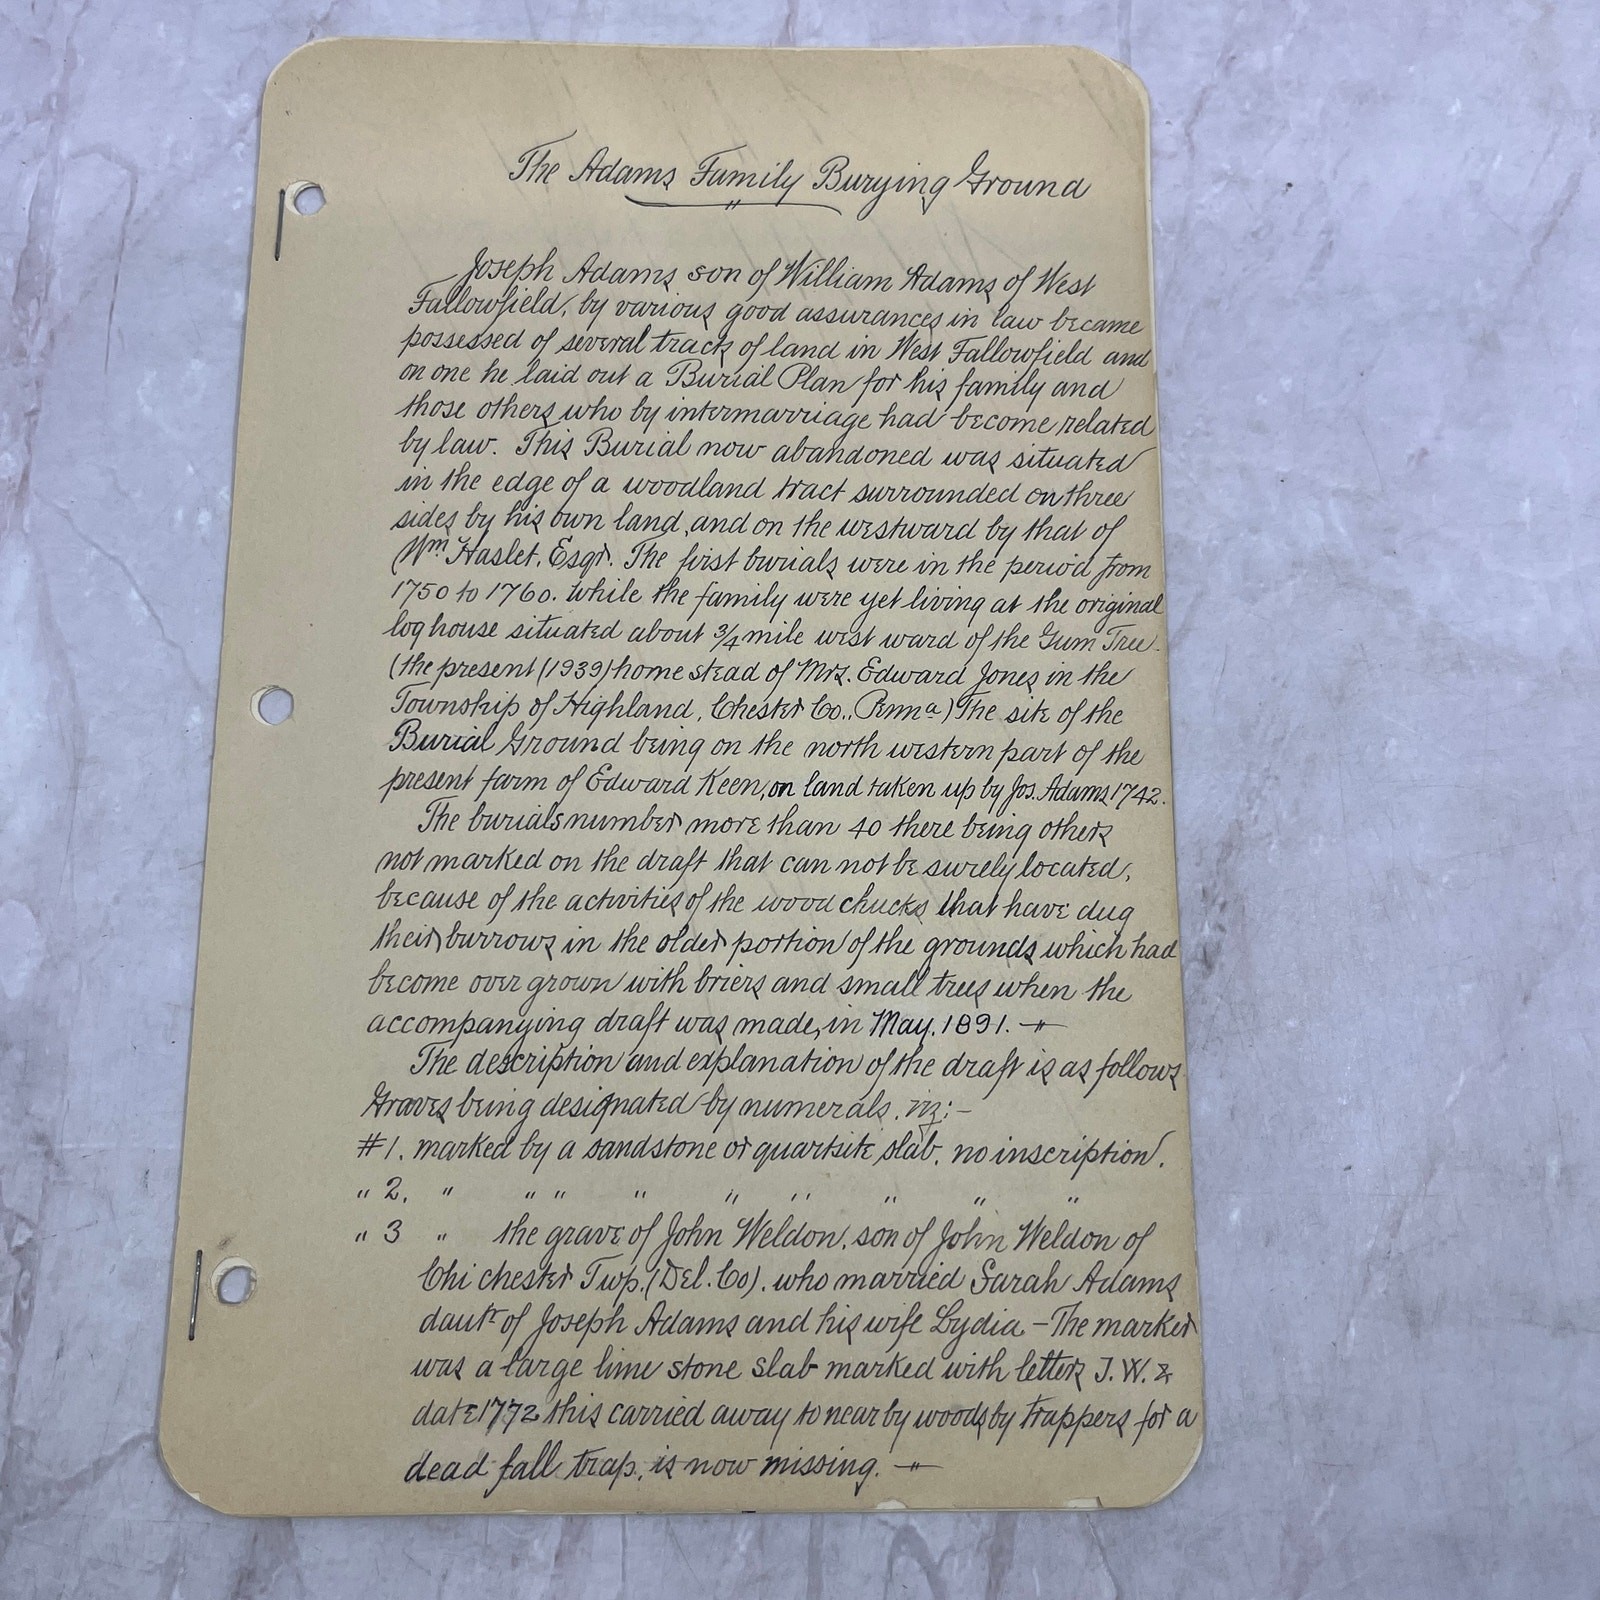 The Adams Family Burying Ground
Joseph Adams son of William Adams of West
Fallowfield, by various good assurances in law became
possessed of several tracts of land in West Fallowfield and
on one he laid out a Burial Plan for his family and
those others who by intermarriage had become related
by law. This Burial now abandoned was situated
in the edge of a woodland tract surrounded on three
sides by his own land, and on the westward by that of
Wm Haslet, Esqr. The first burials were in the period from
1750 to 1760. while the family were yet living at the original
log house situated about 3/4 mile west ward of the Gum Tree
(the present (1939) home stead of Mrs. Edward Jones in the
Township of Highland, Chester Co., Penna) The site of the
Burial Ground being on the north western part of the
present farm of Edward Keen, on land taken up by Jos. Adams 1742.
The burials number more than 40 there being others
not marked on the draft that can not be surely located,
because of the activities of the wood chucks that have dug
their burrows in the older portion of the grounds which had
become over grown with briers and small trees when the
accompanying draft was made, in May, 1891. —"—
The description and explanation of the draft is as follows
Graves being designated by numerals, viz; —
#1. marked by a sandstone or quartsite slab, no inscription.
" 2. " " " " " " " " "
" 3 " the grave of John Weldon, son of John Weldon of
Chi chester Twp. (Del. Co). who married Sarah Adams
dautr of Joseph Adams and his wife Lydia — The marker
was a large lime stone slab marked with letters J. W. &
date 1772 this carried away to near by woods by trappers for a
dead fall trap, is now missing. —"—